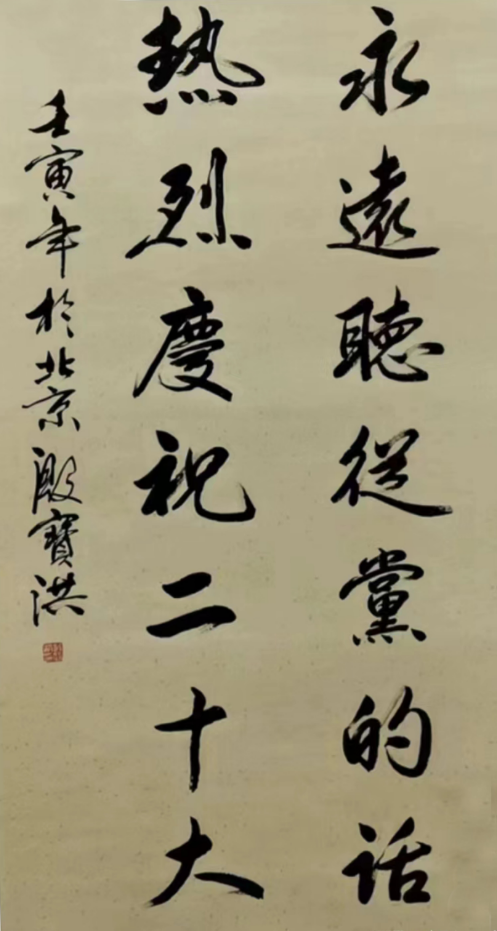 永遠聽從黨的話
熱烈慶祝二十大
壬寅年於北京殷寶洪